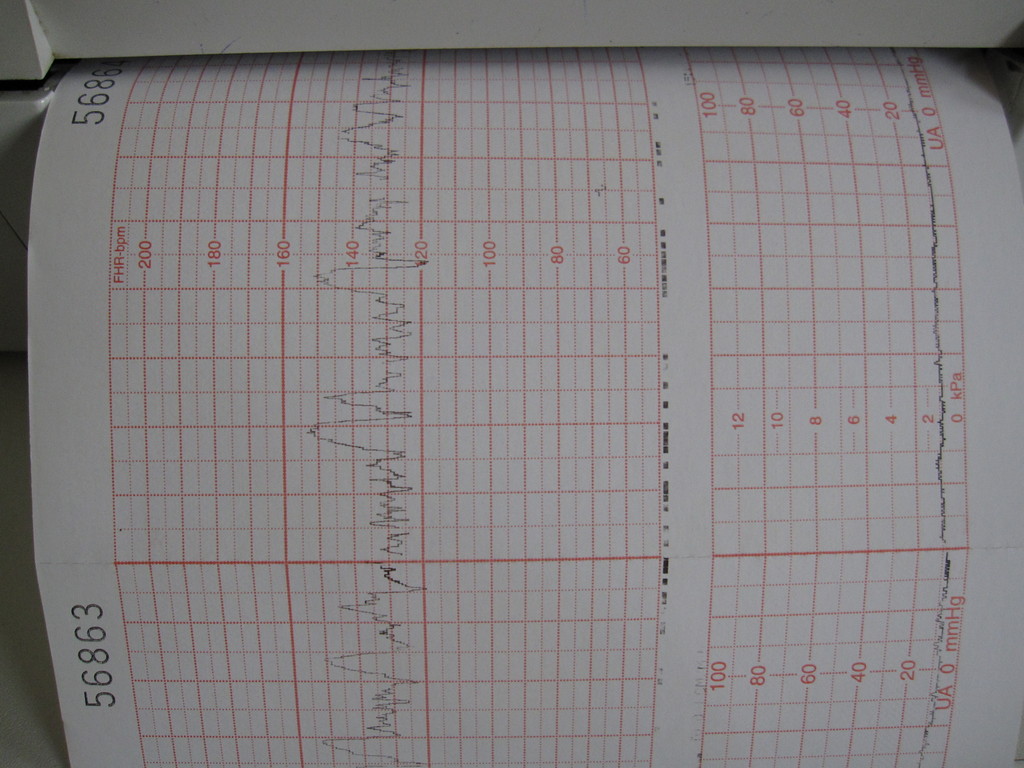 56863
56864
FHR-bpm
200
180
160
140
120
100
80
60
100
80
60
40
20
UA 0 mmHg
12
10
8
6
4
2
0 kPa
100
80
60
40
20
UA 0 mmHg